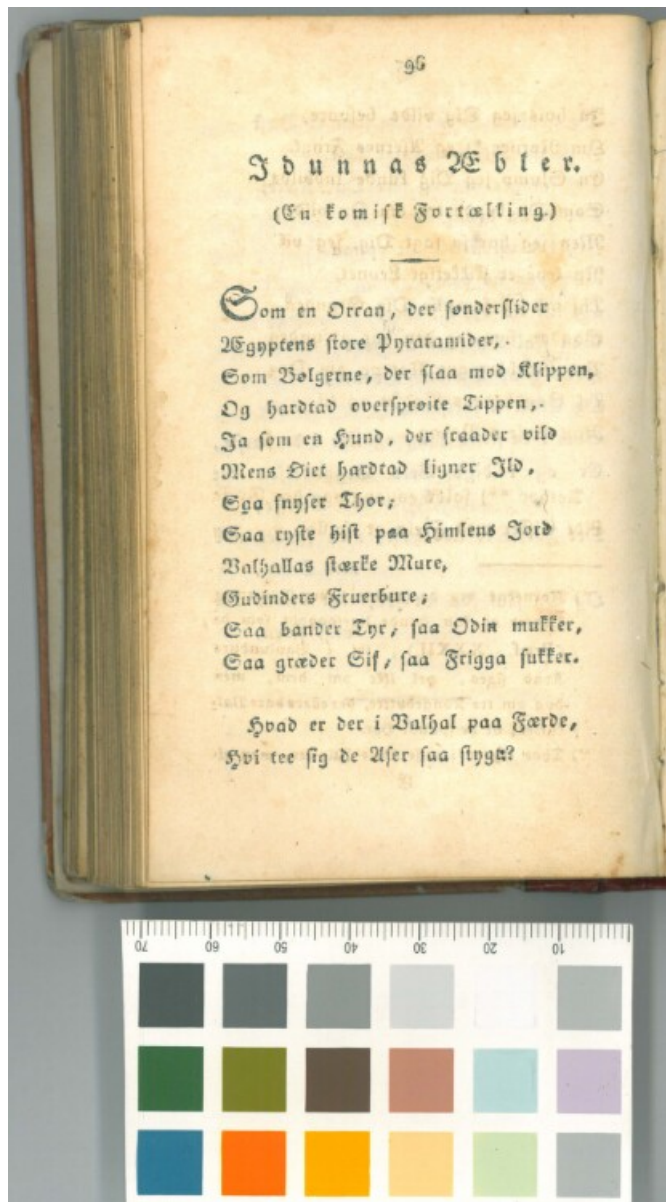 96
Idunnas Æbler.
(En komisk Fortælling.)
Som en Orcan, der sønderslider
Ægyptens store Pyraramider,
Som Bølgerne, der slaa mod Klippen,
Og hardtad oversprøite Tippen,
Ja som en Hund, der fraader vild
Mens Øiet hardtad ligner Ild,
Saa snyser Thor;
Saa ryste hist paa Himlens Jord
Valhallas stærke Mure,
Gudinders Fruerbure;
Saa bander Tyr, saa Odin mukker,
Saa græder Sif, saa Frigga sukker.
Hvad er der i Valhal paa Færde,
Hvi tee sig de Aser saa stygt?
70 60 50 40 30 20 10